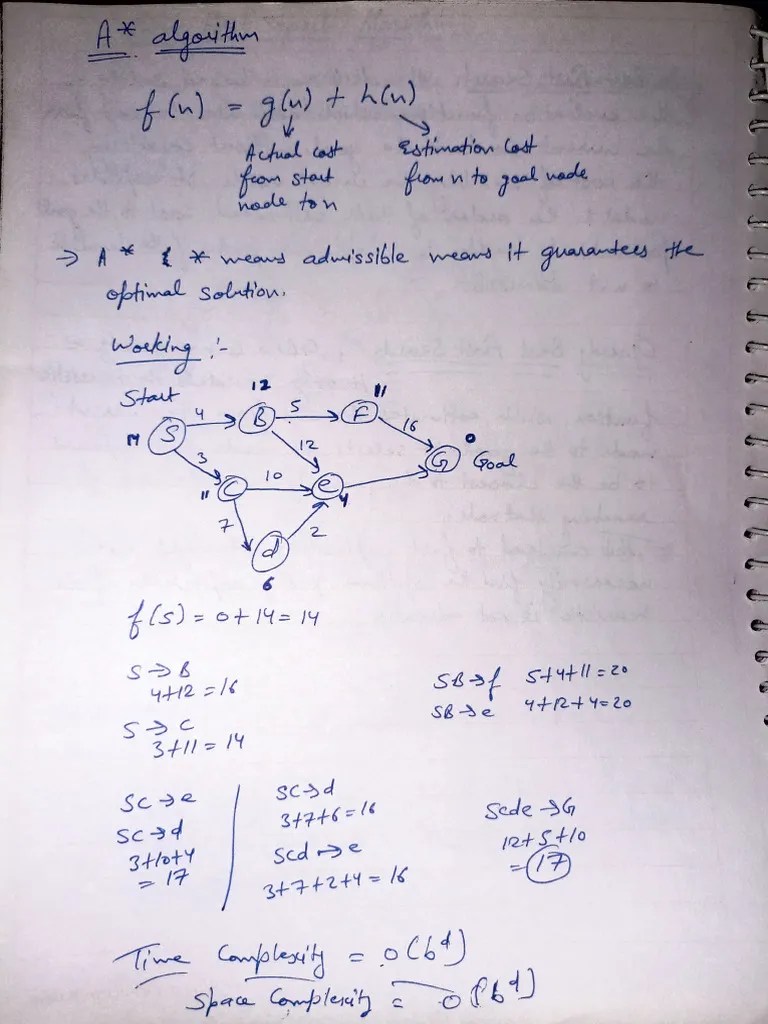 A* algorithm
f(n) = g(n) + h(n)
Actual cost from start node to n
Estimation Cost from n to goal node
→ A* * means admissible means it guarantees the
optimal solution.
Working :-
Start
12
11
S 4 B 5 F 16
14
3
12
0
G Goal
11 C 10 e 4
7
2
d
6
f(s) = 0+14 = 14
S → B
4+12 = 16
S → C
3+11 = 14
SB → f 5+4+11 = 20
SB → e 4+12+4 = 20
SC → e
SC → d
3+10+4
= 17
SC → d
3+7+6 = 16
Scd → e
3+7+2+4 = 16
Scde → G
12+5+10
= 17
Time Complexity = O(b^d)
Space Complexity = O(b^d)